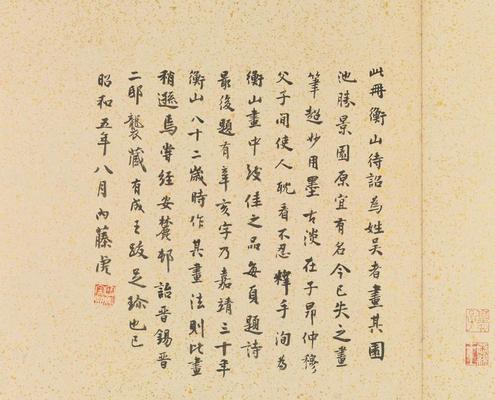 此冊衡山待詔為姓吳者畫其園
池勝景園原宜有名今已失之畫
筆超妙用墨古淡在子昂仲穆
父子間使人耽看不忍釋手洵為
衡山畫中致佳之品每頁題詩
最後題有辛亥字乃嘉靖三十年
衡山八十二歲時作其畫法則比畫
稍遜焉嘗經安麓邨詒晉錫晉
二耶襲藏有成王跋足珍也已
昭和五年八月內藤虎